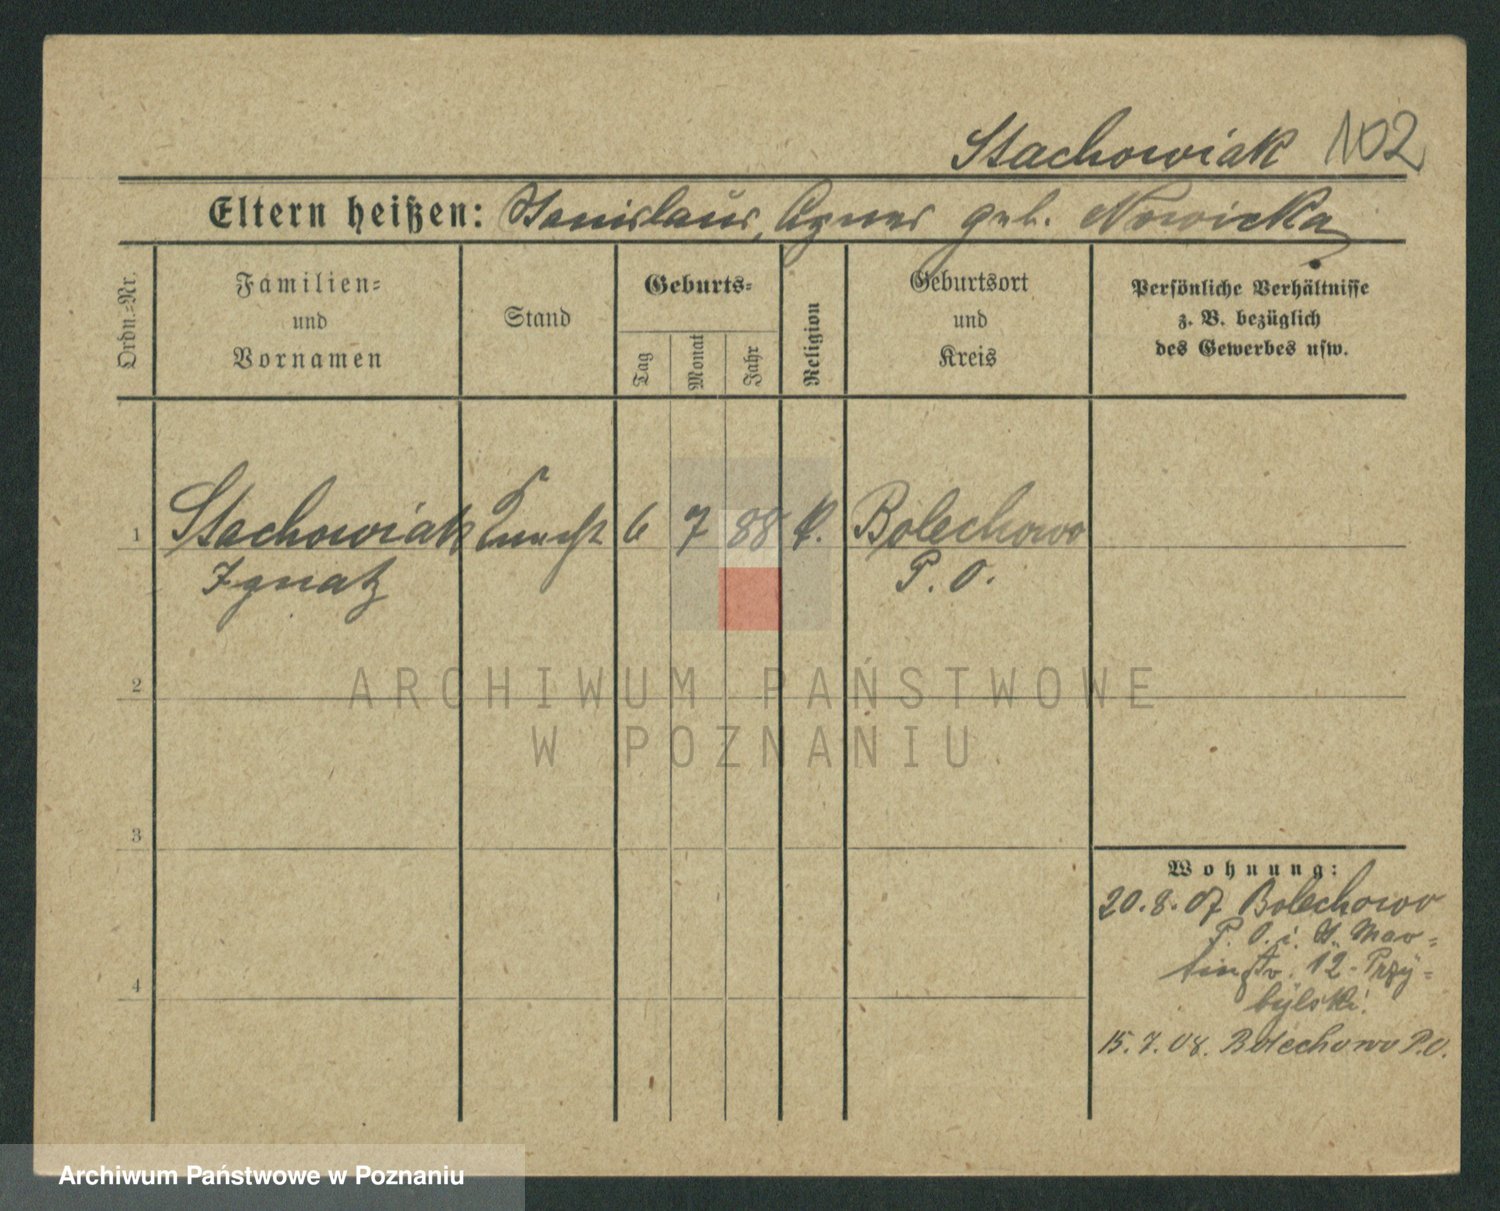 Stachowiak 102
Eltern heißen: Stanislaus, Agnes geb. Nowicka
Ordn.-Nr.
Familien-
und
Vornamen
Stand
Geburts-
Tag
Monat
Jahr
Religion
Geburtsort
und
Kreis
Persönliche Verhältnisse
z. B. bezüglich
des Gewerbes usw.
1 Stachowiak Knecht 6 7 88 k. Bolechowo
Ignatz P. O.
2
3
4
Wohnung:
20.8.07 Bolechowo
P. O. i. St. Mar-
tinstr. 12 - Przy-
bylski.
15.7.08. Bolechowo P.O.
ARCHIWUM PAŃSTWOWE
W POZNANIU
Archiwum Państwowe w Poznaniu